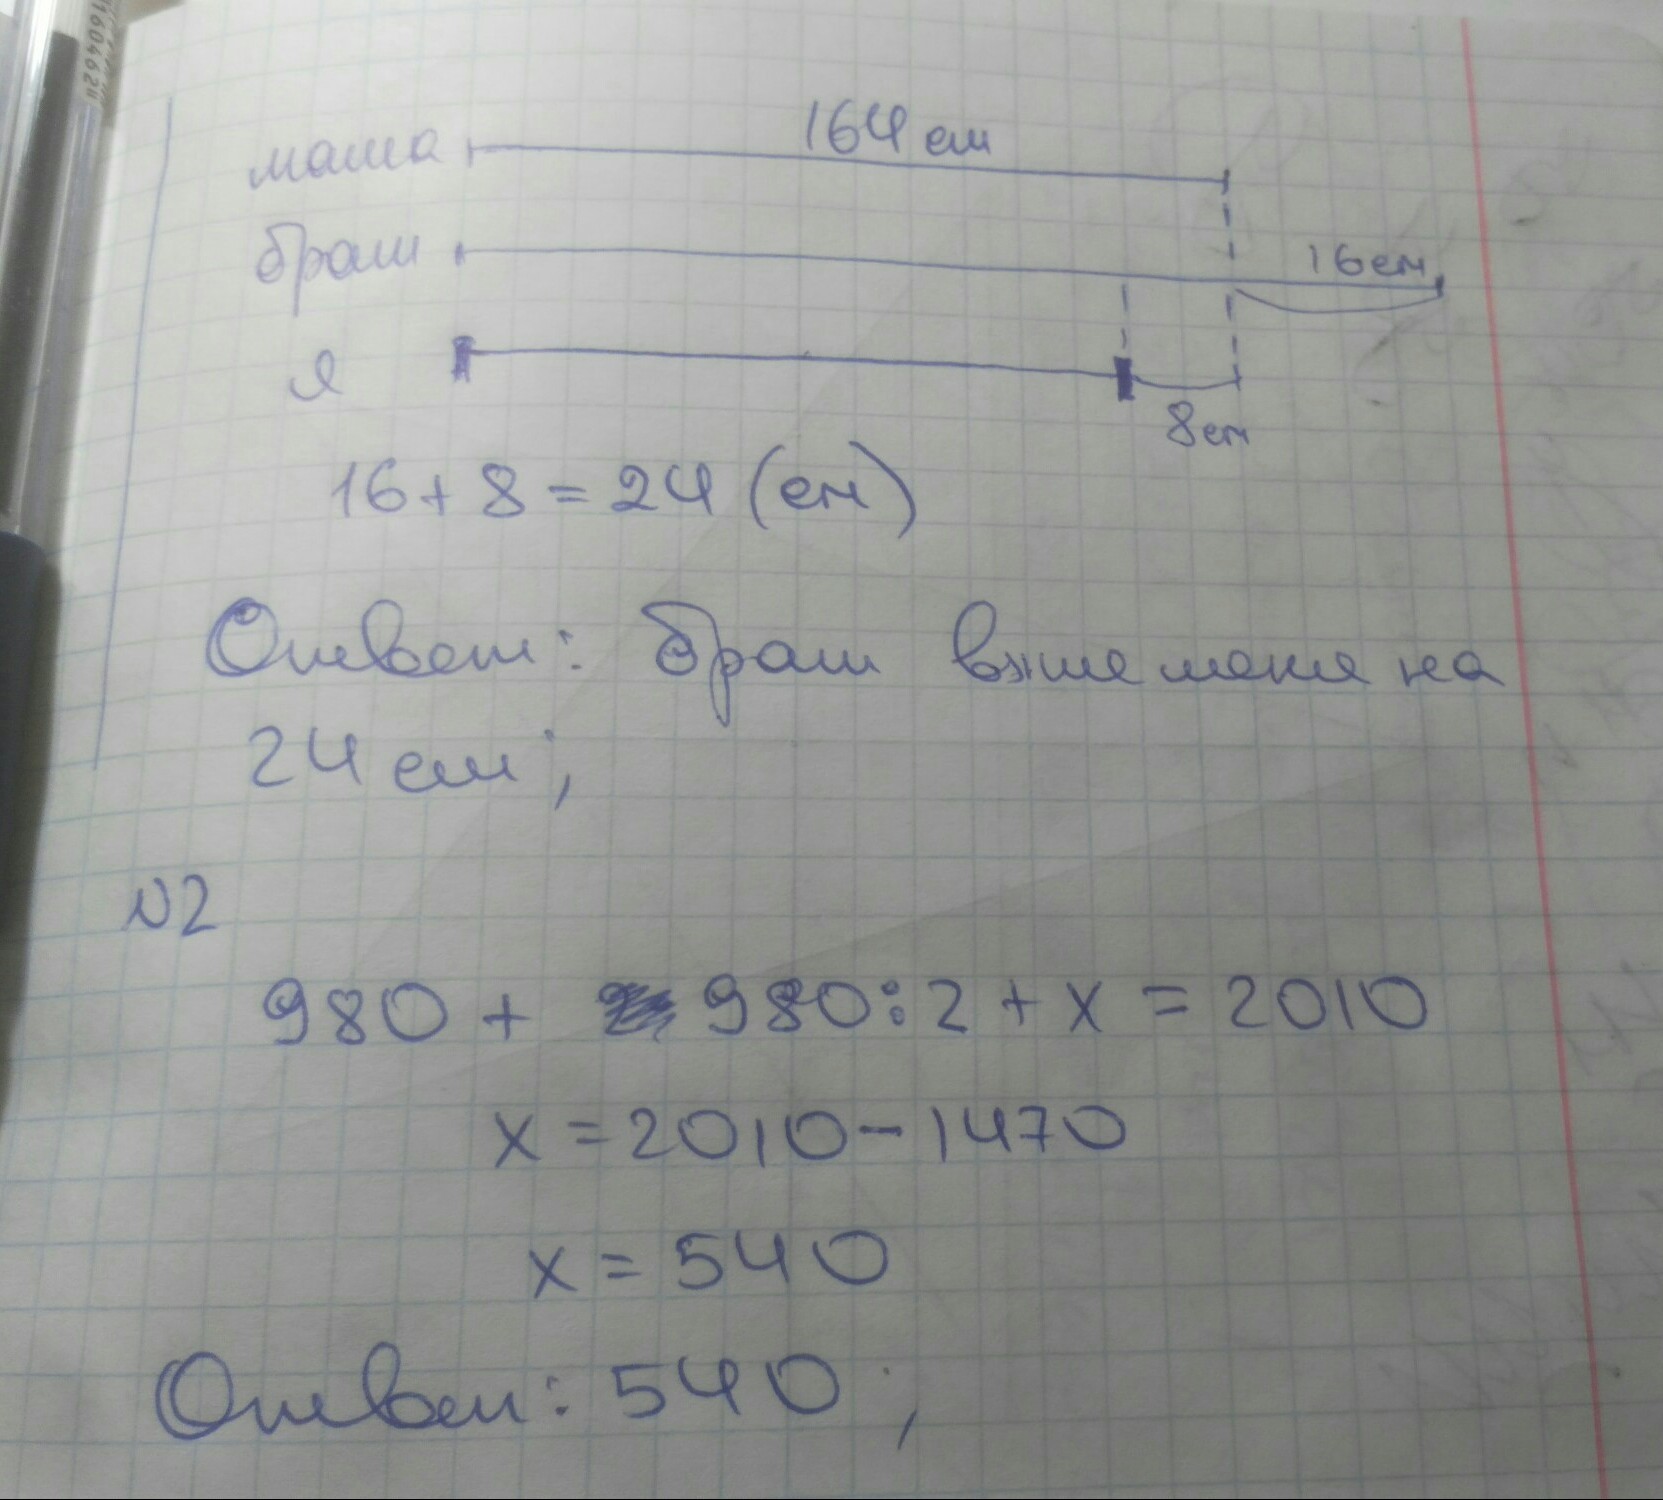 маша 164 см
брат 16 см
я
8 см
16 + 8 = 24 (см)
Ответ: брат выше меня на
24 см;
N2
980 + 980:2 + x = 2010
x = 2010 - 1470
x = 540
Ответ: 540;